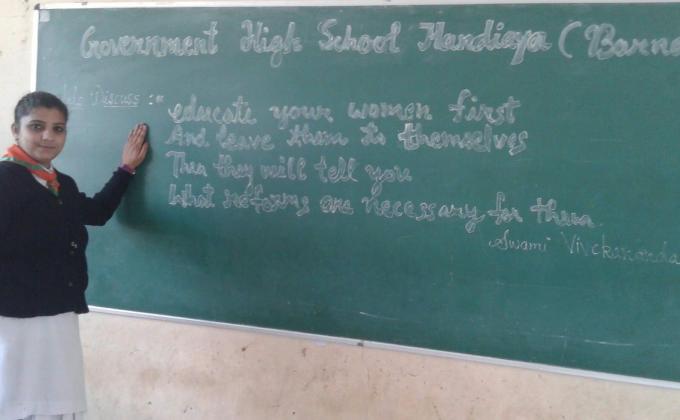 Government High School Handiaya (Barna
Discuss :-
educate your women first
And leave them to themselves
Then they will tell you
What reforms are necessary for them
Swami Vivekananda